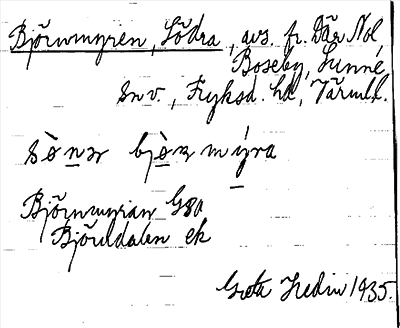 Björnmyren, Södra, avs. fr. Där Nol,
Boseby, Sunne
Snv., Fryksd. hd, Värml.
sònər bjòn mýra
Björnmyrian G80
Björndalen ek
Greta Hedin 1935.